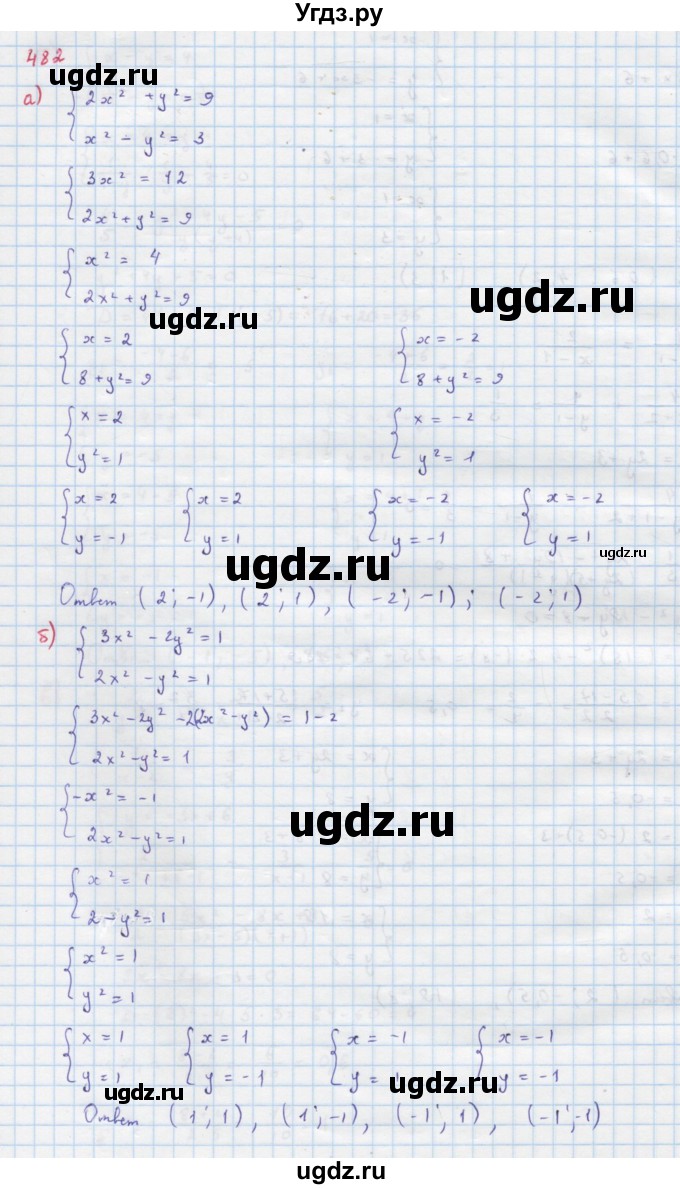 Угдз.ру
482
ugdz.ru
а) { 2x² + y² = 9
x² - y² = 3
{ 3x² = 12
2x² + y² = 9
{ x² = 4
2x² + y² = 9
ugdz.ru
ugdz.ru
{ x = 2 { x = -2
8 + y² = 9 8 + y² = 9
{ x = 2 { x = -2
y² = 1 y² = 1
{ x = 2 { x = 2 { x = -2 { x = -2
y = -1 y = 1 y = -1 y = 1
ugdz.ru
ugdz.ru
Ответ (2; -1), (2; 1), (-2; -1); (-2; 1)
б) { 3x² - 2y² = 1
2x² - y² = 1
{ 3x² - 2y² - 2(2x² - y²) = 1 - 2
2x² - y² = 1
{ -x² = -1
2x² - y² = 1
ugdz.ru
{ x² = 1
2 - y² = 1
{ x² = 1
y² = 1
{ x = 1 { x = 1 { x = -1 { x = -1
y = 1 y = -1 y = 1 y = -1
ugdz.ru
ugdz.ru
Ответ (1; 1), (1; -1), (-1; 1), (-1; -1)
ugdz.ru